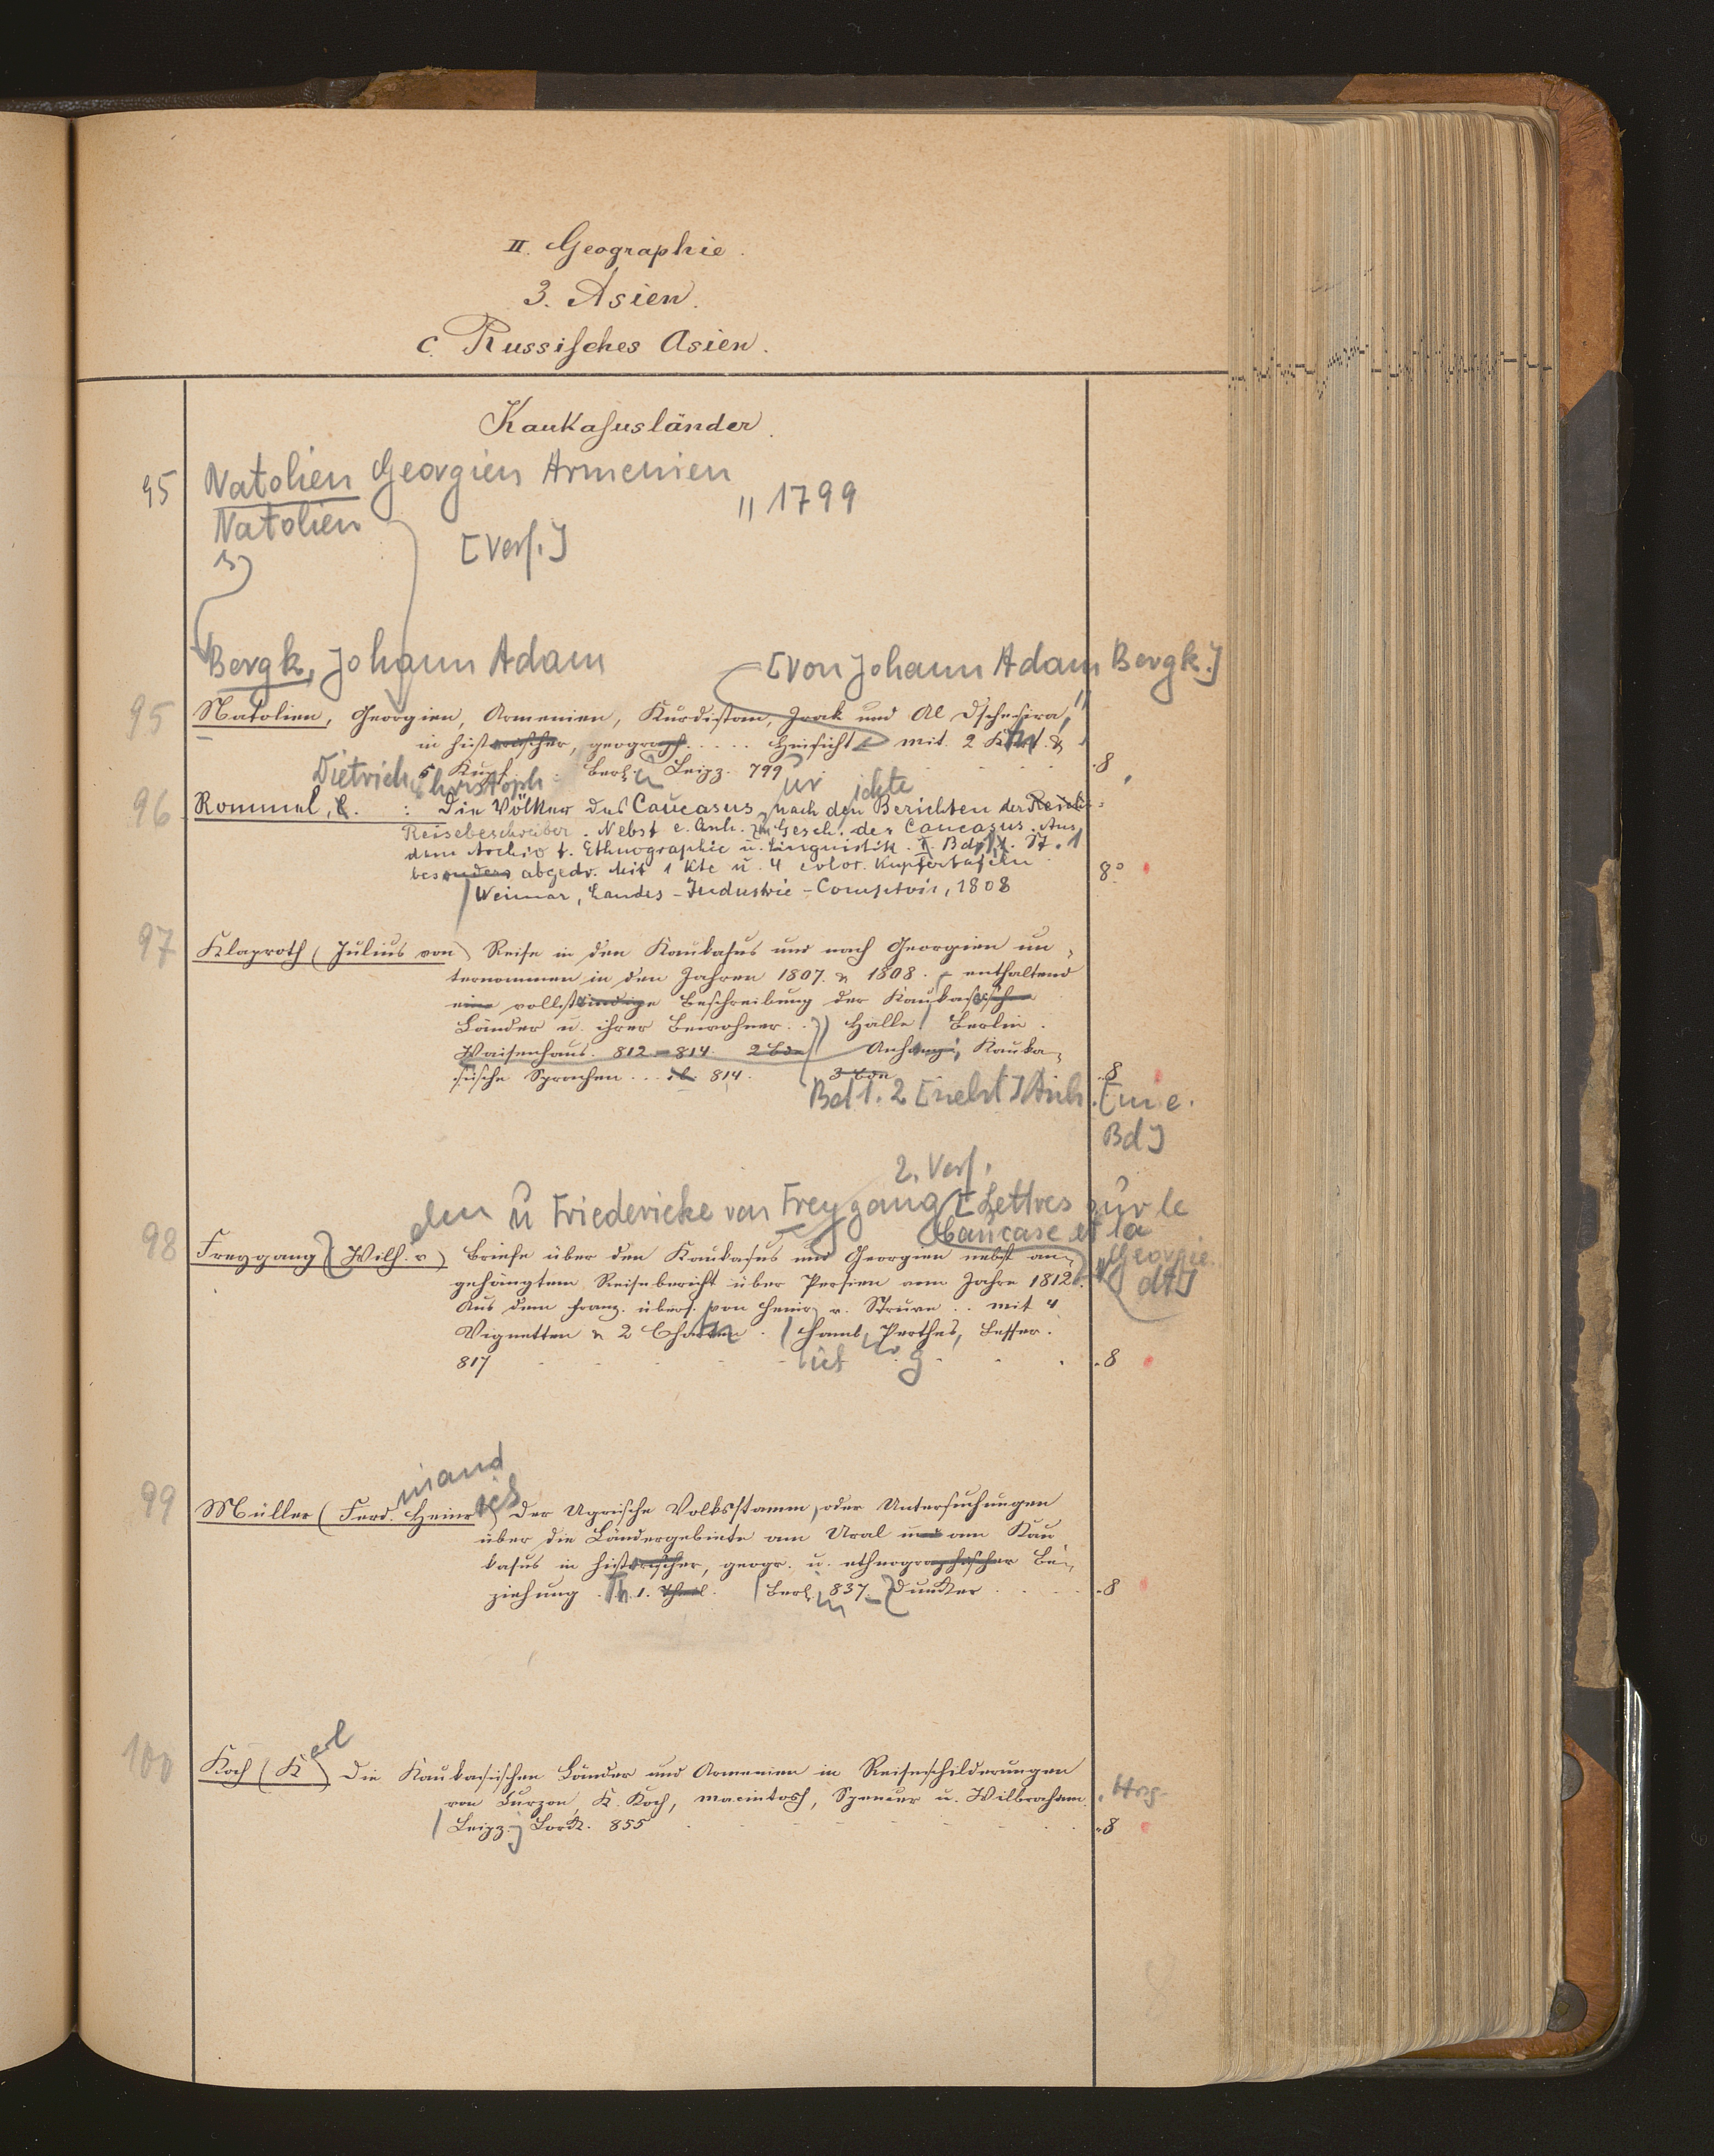 II. Geographie.
3. Asien.
c. Russisches Asien.
Kaukasusländer.
95 Natolien Georgien Armenien
" 1799
Natolien
[Verf.]
Bergk, Johann Adam [von Johann Adam Bergk.]
95 Natolien, Georgien, Armenien, Kurdistan, Irak und Al Dschesira,
in historischer, geograph. . . . . Hinsicht mit 2 Kart. &
5 Kupf. Berl. Leipz. 799 8
Dietrich Christoph
96 Rommel, C. : Die Völker des Caucasus nach den Berichten der Reise-
Reisebeschreiber. Nebst e. Anh. zur Gesch. des Caucasus. Aus
dem Archiv f. Ethnographie u. Linguistik. Bd. St. 1
besonders abgedr. Mit 1 Kte u. 4 color. Kupfertafeln 8°
Weimar, Landes-Industrie-Comptoir, 1808
97 Klaproth (Julius von) Reise in den Kaukasus und nach Georgien un-
ternommen in den Jahren 1807. & 1808. enthaltend
eine vollständige Beschreibung der Kaukasischen
Länder u. ihrer Bewohner. . Halle Berlin.
Waisenhaus. 812-814. 2 Bde Anhang: Kauka-
sische Sprachen . . . ib. 814. 3 Bde 8
Bd 1. 2 [nebst] Anh. [in e.
Bd]
2. Verf.
u Friedericke von Freygang [Lettres sur le
Caucase et la
Georgie.
dt]
98 Freygang (Wilh. v) Briefe über den Kaukasus und Georgien nebst an-
gehängtem Reisebericht über Persien vom Jahre 1812.
Aus dem Franz. übers. von Heinr. v. Struve . . mit 4
Vignetten & 2 Charten. Hamb. Perthes, Besser.
817 8
99 Müller (Ferd. Heinr.) Der Ugrische Volksstamm, oder Untersuchungen
über die Ländergebiete am Ural und am Kau
kasus in historischer, geogr. u. ethnographischer Be-
ziehung. Th. 1. Theil. Berl. 837. Duncker 8
100 Koch (K) Die Kaukasischen Länder und Armenien in Reiseschilderungen
von Curzon, K. Koch, Macintosh, Spencer u. Wilbraham. Hrsg
Leipz. Lorck. 855 8